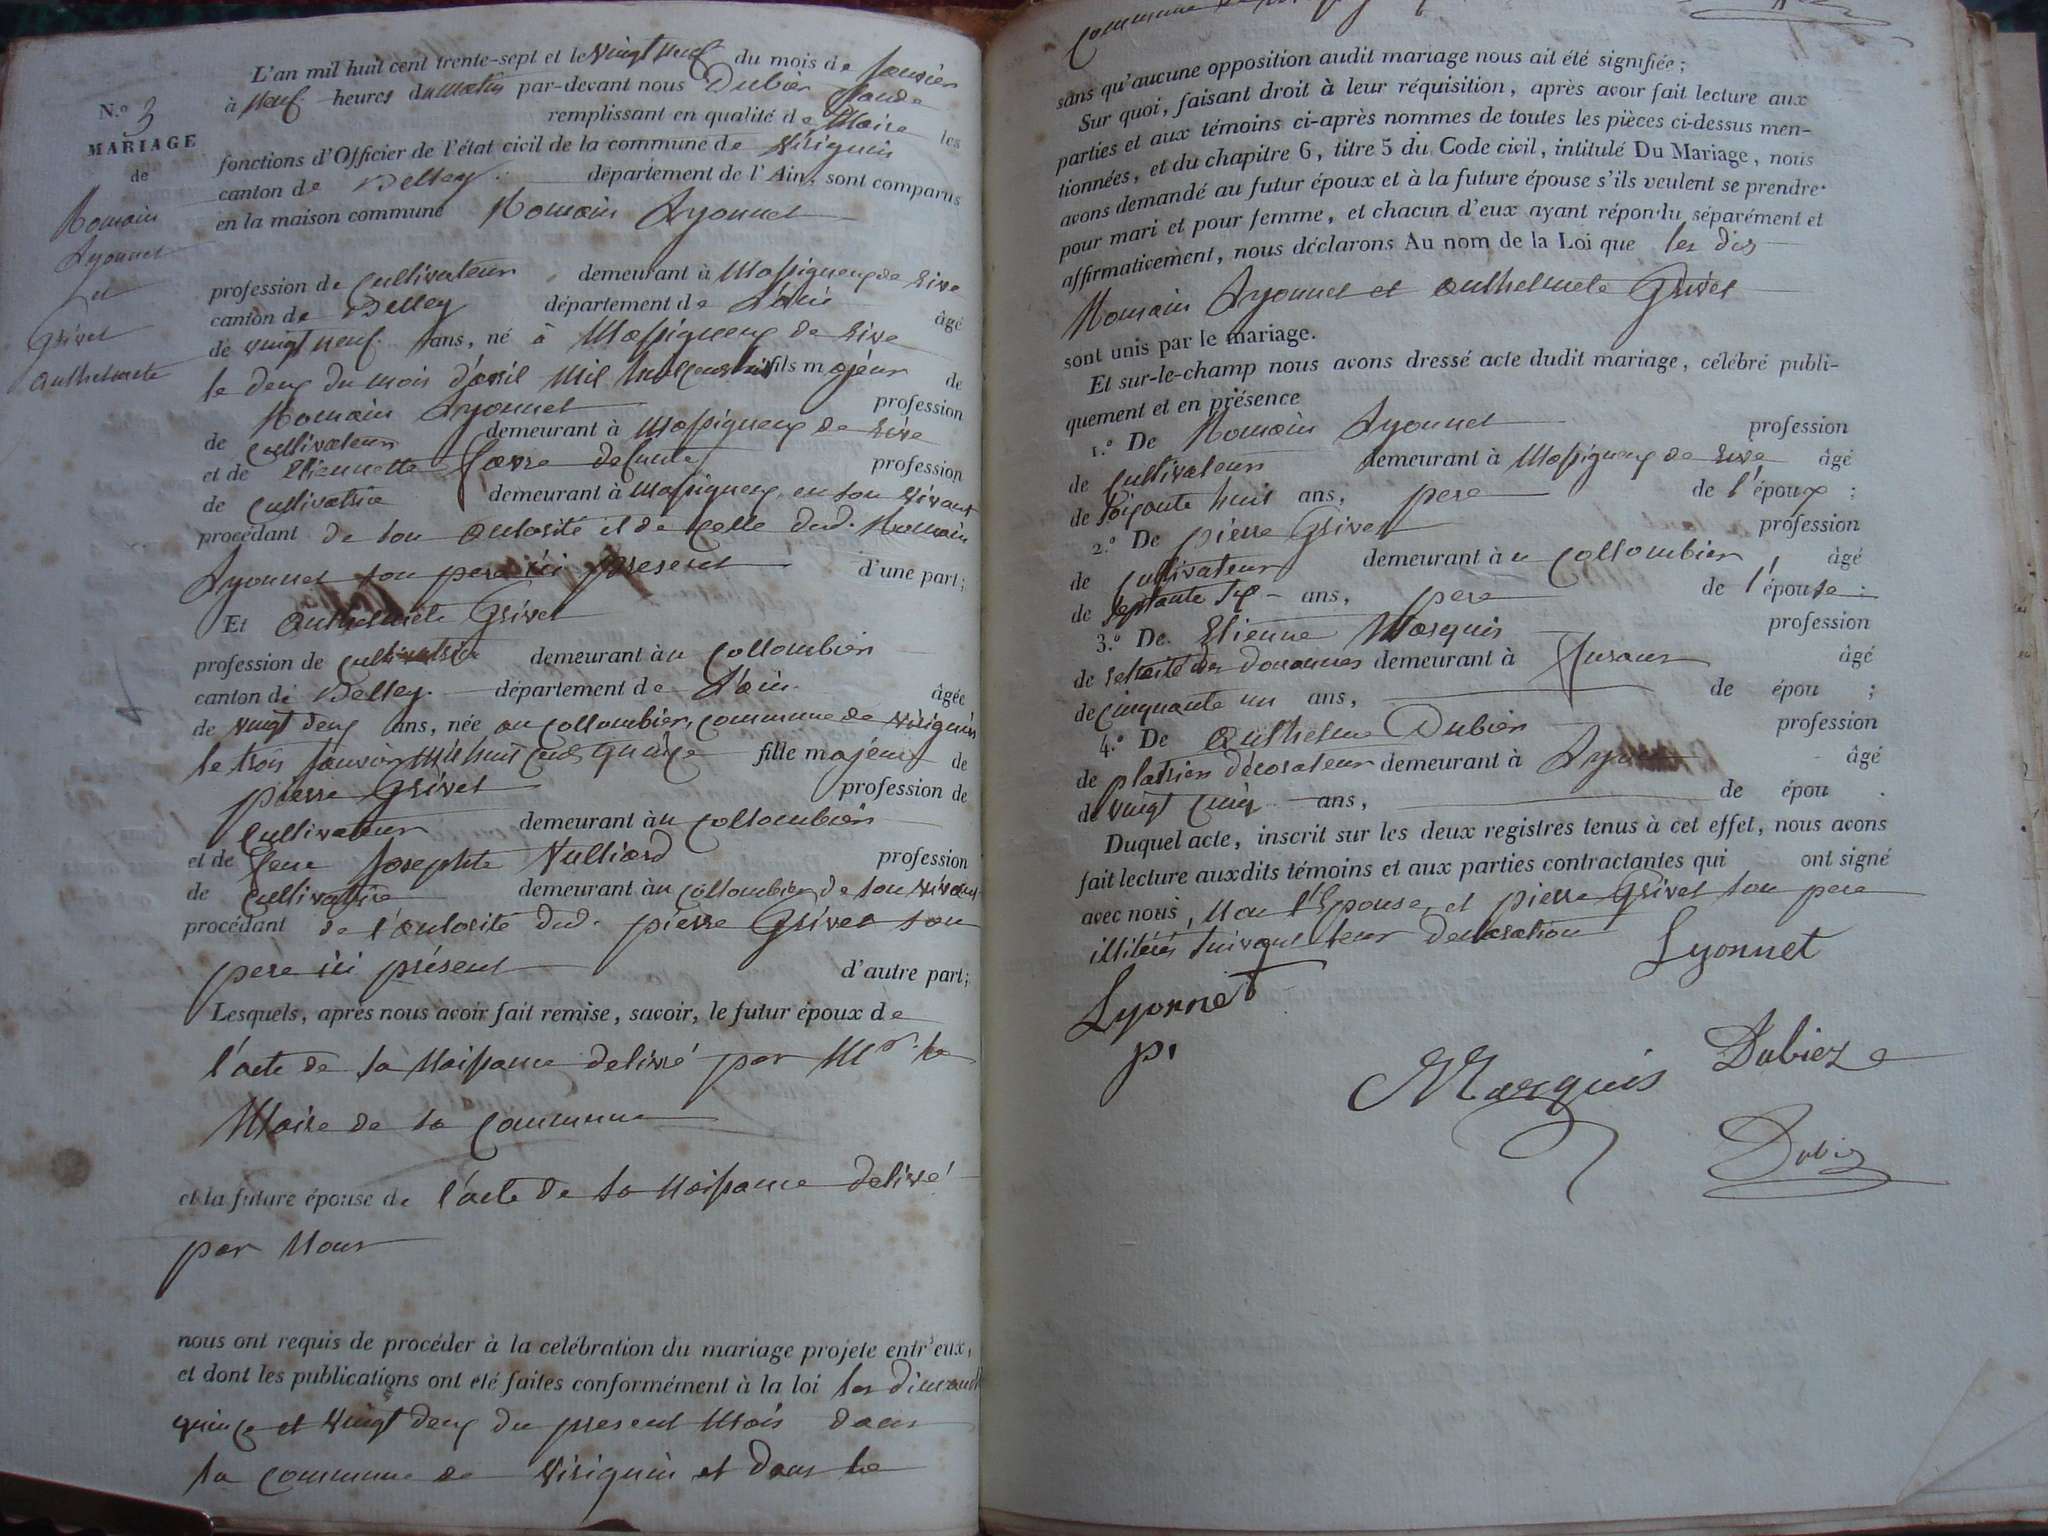 L'an mil huit cent trente-sept et le vingt neuf du mois de janvier
à neuf heures du matin par-devant nous Dubiez Claude
remplissant en qualité de Maire les
fonctions d'Officier de l'état civil de la commune de Virignin
canton de Belley département de l'Ain, sont comparus
en la maison commune Romain Lyonnet
N.º 3
MARIAGE
de
Romain
Lyonnet
et
Grivet
Anthelmete
profession de cultivateur demeurant à Massigneux de Rive
canton de Belley département de L'ain âgé
de vingt neuf ans, né à Massigneux de Rive
le deux du mois d'avril mil huit cent huit fils majeur de
Romain Lyonnet profession
de cultivateur demeurant à Massigneux de Rive
et de Etiennette favre defunte profession
de cultivatrice demeurant à Massigneux en son vivant
procédant de son autorité et de celle dud. Romain
Lyonnet son pere ici present d'une part;
Et Anthelmete Grivet
profession de cultivatrice demeurant à u collombier
canton de Belley département de L'ain âgée
de vingt deux ans, née au collombier, commune de Virignin
le trois janvier mil huit cent quinze fille majeure de
pierre Grivet profession de
cultivateur demeurant à u collombier
et de feue Josephte Vulliard profession
de cultivatrice demeurant à u collombier de son vivant
procédant de l'autorité dud. pierre Grivet son
pere ici présent d'autre part;
Lesquels, après nous avoir fait remise, savoir, le futur époux de
l'acte de sa Naissance delivré par Mr. le
Maire de sa commune
et la future épouse de l'acte de sa Naissance delivré
par Nous
nous ont requis de procéder à la celébration du mariage projete entr'eux,
et dont les publications ont été faites conformément à la loi les dimanch
quinze et vingt deux du present Mois dans
la commune de Virignin et dans la
Commune de
sans qu'aucune opposition audit mariage nous ait été signifiée;
Sur quoi, faisant droit à leur réquisition, après avoir fait lecture aux
parties et aux témoins ci-après nommes de toutes les pièces ci-dessus men-
tionnées, et du chapitre 6, titre 5 du Code civil, intitulé Du Mariage, nous
avons demandé au futur époux et à la future épouse s'ils veulent se prendre
pour mari et pour femme, et chacun d'eux ayant répondu séparément et
affirmativement, nous déclarons Au nom de la Loi que les dits
Romain Lyonnet et Anthelmete Grivet
sont unis par le mariage.
Et sur-le-champ nous avons dressé acte dudit mariage, célébré publi-
quement et en présence
1.º De Romain Lyonnet profession
de cultivateur demeurant à Massigneux de Rive âgé
de soixante huit ans, pere de l'époux;
2.º De pierre Grivet profession
de cultivateur demeurant à u collombier, âgé
de septante six ans, pere de l'épouse;
3.º De Etienne Marquis profession
de retraité des douannes demeurant à âgé
de cinquante un ans, de épou ;
4.º De Anthelme Dubiez profession
de platrier décorateur demeurant à Lyon âgé
de vingt cinq ans, de épou .
Duquel acte, inscrit sur les deux registres tenus à cet effet, nous avons
fait lecture auxdits témoins et aux parties contractantes qui ont signé
avec nous, Non l'Epouse, et pierre Grivet son pere
illitérés suivant leur declaration
Lyonnet
Lyonnet
p.
Marquis
Dubiez
Dubiez